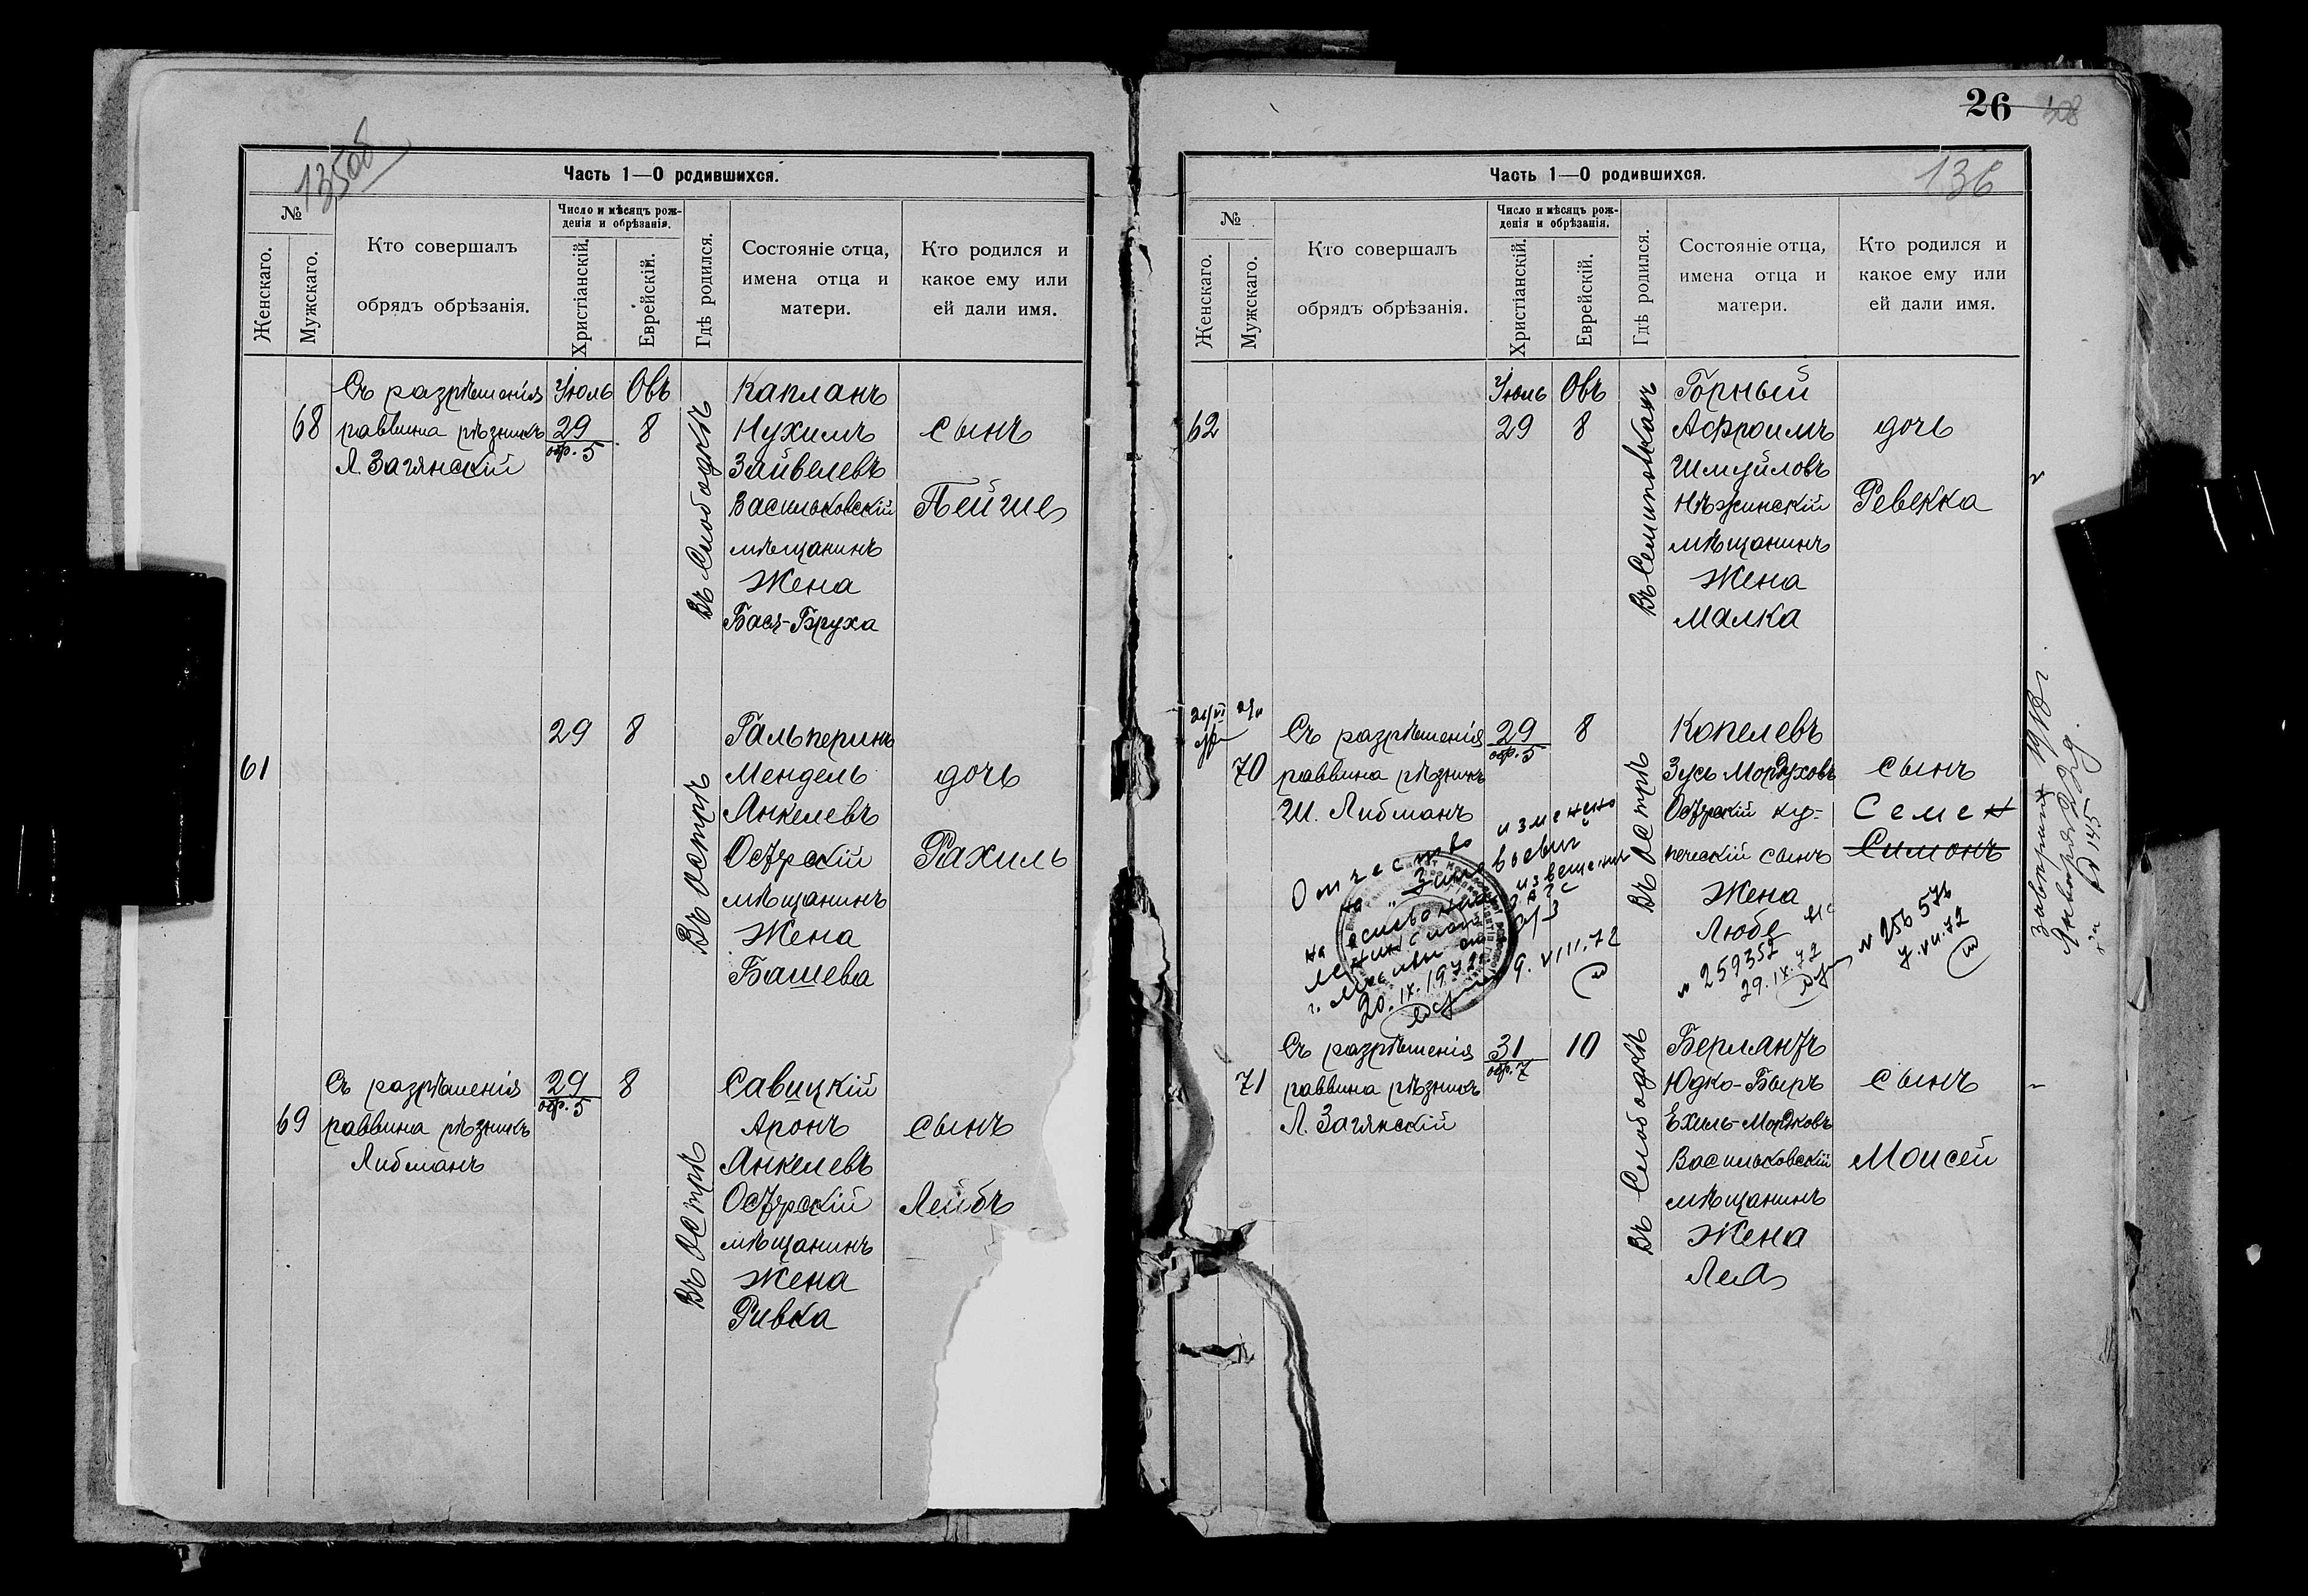 135об
Часть 1—О родившихся.
№
Женскаго.
Мужскаго.
Кто совершалъ
обрядъ обрѣзанія.
Число и мѣсяцъ рож-
денія и обрѣзанія.
Христіанскій.
Еврейскій.
Гдѣ родился.
Состояніе отца,
имена отца и
матери.
Кто родился и
какое ему или
ей дали имя.
Съ разрѣшенія Іюль Овъ Капланъ
68 раввина рѣзникъ 29 8 Нухимъ сынъ
Л. Загянскій обр. 5 Зайвелевъ
Васильковскій Пейше
мѣщанинъ
Жена
Бася-Бруха
Въ Слободкѣ
29 8 Гальперинъ
61 Мендель дочь
Янкелевъ
Остерскій Рахиль
мѣщанинъ
Жена
Башева
Въ Острѣ
Съ разрѣшенія 29 8 Савицкій
обр. 5
69 раввина рѣзникъ Аронъ сынъ
Либманъ Янкелевъ
Остерскій Лейбъ
мѣщанинъ
Жена
Ривка
Въ Острѣ
26
136
Часть 1—О родившихся.
№
Женскаго.
Мужскаго.
Кто совершалъ
обрядъ обрѣзанія.
Число и мѣсяцъ рож-
денія и обрѣзанія.
Христіанскій.
Еврейскій.
Гдѣ родился.
Состояніе отца,
имена отца и
матери.
Кто родился и
какое ему или
ей дали имя.
Іюль Овъ Горный
62 29 8 Афроимъ дочь
Шмуйловъ
Нѣжинскій Ревекка
мѣщанинъ
Жена
Малка
Въ Семиполкахъ
Съ разрѣшенія 29 8 Копелевъ
обр. 5
70 раввина рѣзникъ Зусь Мордуховъ сынъ
Ш. Либманъ Остерскій ку- Семен
печескій сынъ Симонъ
Жена
Любе
Въ Острѣ
Отчество изменено
на "Зиновьевич"
на основании извещения
г. Москвы
20.IX.1972
9.VIII.72
№ 259352
29.IX.72
№ 256576
7.VII.72
Съ разрѣшенія 31 10 Берлантъ
обр. 7
71 раввина рѣзникъ Юдко-Беръ сынъ
Л. Загянскій Ехиль-Мордковъ
Васильковскій Моисей
мѣщанинъ
Жена
Лея
Въ Слободкѣ
за № 145